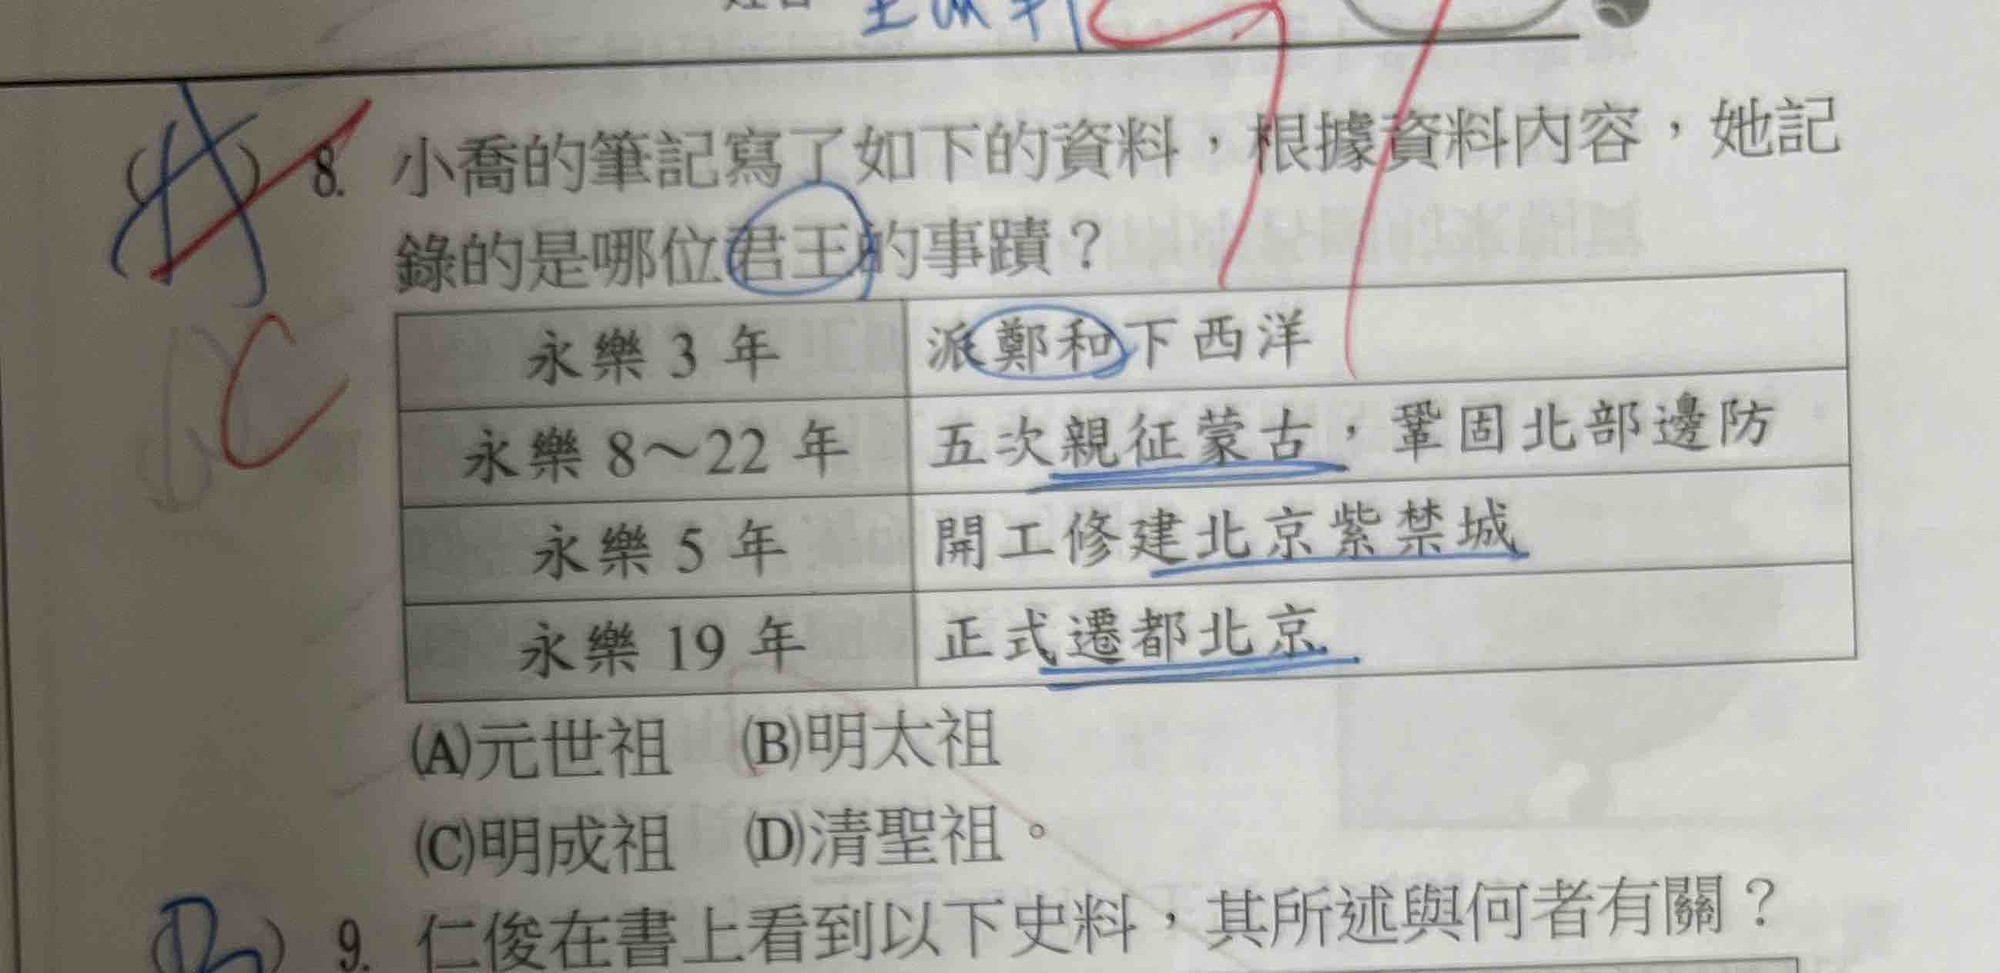 (A) 8. 小喬的筆記寫了如下的資料，根據資料內容，她記
錄的是哪位君王的事蹟？
C
永樂 3 年 派鄭和下西洋
永樂 8～22 年 五次親征蒙古，鞏固北部邊防
永樂 5 年 開工修建北京紫禁城
永樂 19 年 正式遷都北京
(A)元世祖 (B)明太祖
(C)明成祖 (D)清聖祖。
(B) 9. 仁俊在書上看到以下史料，其所述與何者有關？